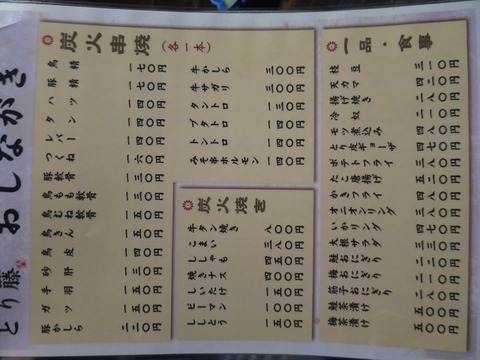 とり藤
おしながき
炭火串焼(各一本)
鳥精 一七〇円
豚精 一七〇円
タン 一四〇円
ハツ 一四〇円
レバー 一四〇円
つくね 一六〇円
豚軟骨 一三〇円
鳥もも軟骨 一三〇円
鳥むね軟骨 一五〇円
鳥きん 一五〇円
鳥皮 一四〇円
砂肝 一三〇円
手羽 一五〇円
ガツ 一五〇円
豚かしら 二二〇円
牛かしら 三〇〇円
牛サガリ 三〇〇円
タントロ 一三〇円
ブタトロ 一四〇円
トントロ 一四〇円
みそ串ホルモン 一四〇円
炭火焼き
牛タン焼き 八〇〇円
こまい 三八〇円
ししゃも 四五〇円
焼きナス 四〇〇円
しいたけ 一五〇円
ピーマン 一〇〇円
ししとう 一五〇円
一品・食事
枝豆 三一〇円
天カマ 四三〇円
揚げ焼き 二八〇円
冷奴 二八〇円
モツ煮込み 四八〇円
とり皮ギョーザ 四七〇円
ポテトフライ 三八〇円
たこ唐揚げ 四五〇円
かきフライ 四八〇円
オニオンリング 三八〇円
いかリング 四七〇円
大根サラダ 三八〇円
鮭おにぎり 二三〇円
梅おにぎり 二一〇円
筋子おにぎり 二八〇円
鮭茶漬け 五〇〇円
梅茶漬け 五〇〇円